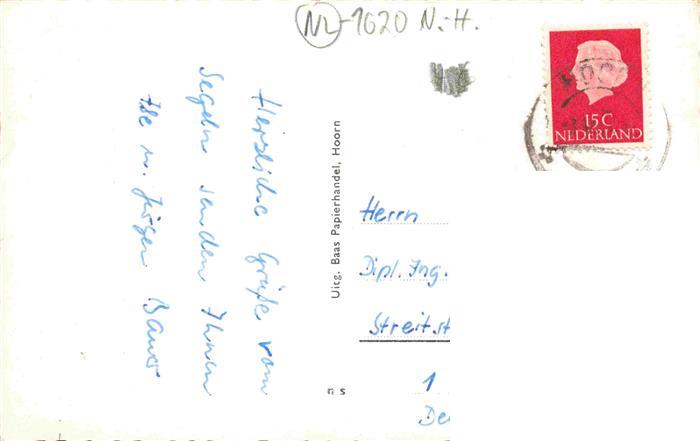 NL-1620 N.-H.
15 C
NEDERLAND
Herzliche Grüße vom
Segeln senden Ihnen
Ilse u. Jürgen Bauer
Uitg. Baas Papierhandel, Hoorn
Herrn
Dipl. Ing.
Streitst
1
De
n s